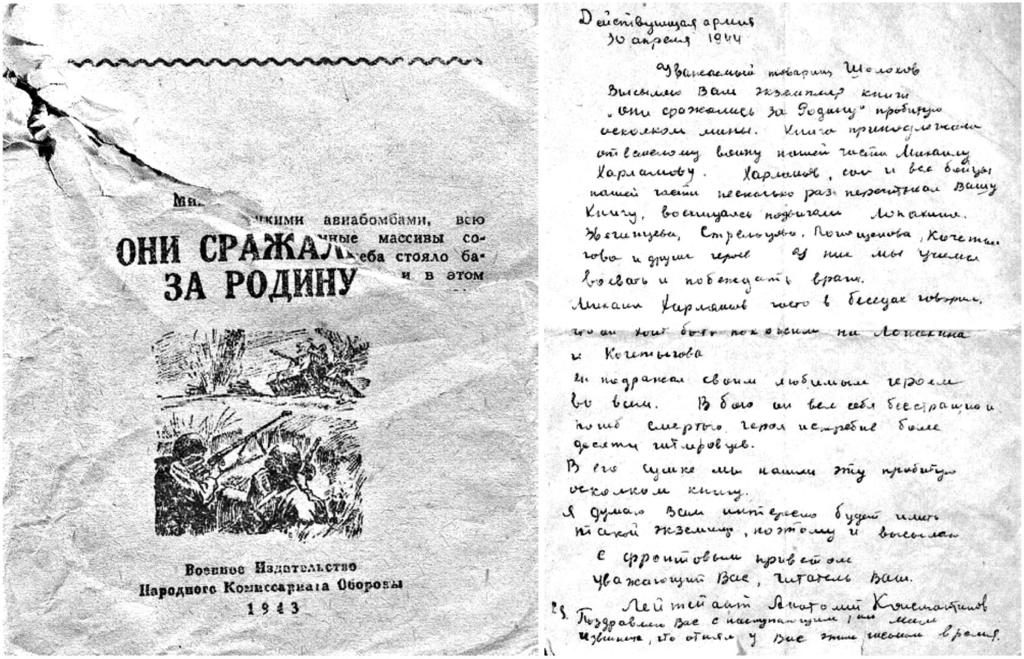 Ми
ткими авиабомбами, всю
нные массивы со-
ОНИ СРАЖАЛ
неба стояло ба-
ЗА РОДИНУ
и в этом
Военное Издательство
Народного Комиссариата Обороны
1943
Действующая армия
30 апреля 1944
Уважаемый товарищ Шолохов
Высылаю Вам экземпляр книги
„Они сражались за Родину" пробитую
осколком мины. Книга принадлежала
отважному воину нашей части Михаилу
Харламову. Харламов, и все бойцы
нашей части несколько раз перечитывал Вашу
Книгу, восхищаясь подвигами Лопахина,
Звягинцева, Стрельцова, Поприщенко, Кочеты
гова и других герое У них мы учимся
воевать и побеждать врага.
Михаил Харламов часто в беседах говорил,
что он хочет быть похожим на Лопахина
и Кочетыгова
Он подражал своим любимым героям
во всем. В бою он вел себя бесстрашно и
погиб смертью героя истребив более
десяти гитлеровцев.
В его сумке мы нашли эту пробитую
осколком книгу.
Я думаю Вам интересно будет иметь
такой экземпляр, поэтому и высылаю
С фронтовым приветом
уважающий Вас, читатель Ваш.
Лейтенант Анатолий Константинов
Поздравляю Вас с наступающим мая
Извините, что отнял у Вас этим письмом время.